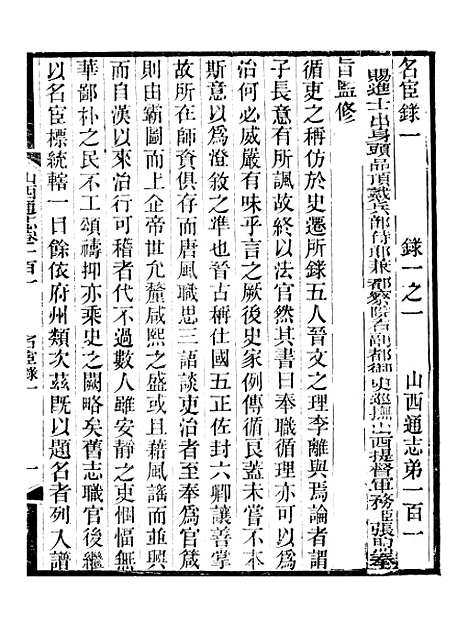 名宦錄一　錄一之一　山西通志弟一百一
賜進士出身頭品頂戴兵部侍郎兼都察院右副都御史巡撫山西提督軍務臣張煦奉
旨監修
循吏之稱仿於史遷所錄五人晉文之理李離與焉論者謂
子長有所諷故終以法官然其書曰奉職循理亦可以爲
治何必威嚴有味乎言之厥後史家例傳循良蓋未嘗不本
斯意以爲澄敘之準也晉古稱仕國五正佐封六卿讓善掌
故所在師資俱存而唐風職思三語談吏治者至奉爲官箴
則由霸圖而帝世允釐咸熙之盛或且藉風謠而並興
而自漢以來治行可稽者代不過數人雖安靜之吏悃愊無
華鄙朴之民不工頌禱抑亦乘史之闕略矣舊志職官後繼
以名宦標統轄一目餘依府州類次茲旣以題名者列入譜
山西通志卷一百一　名宦錄一　一